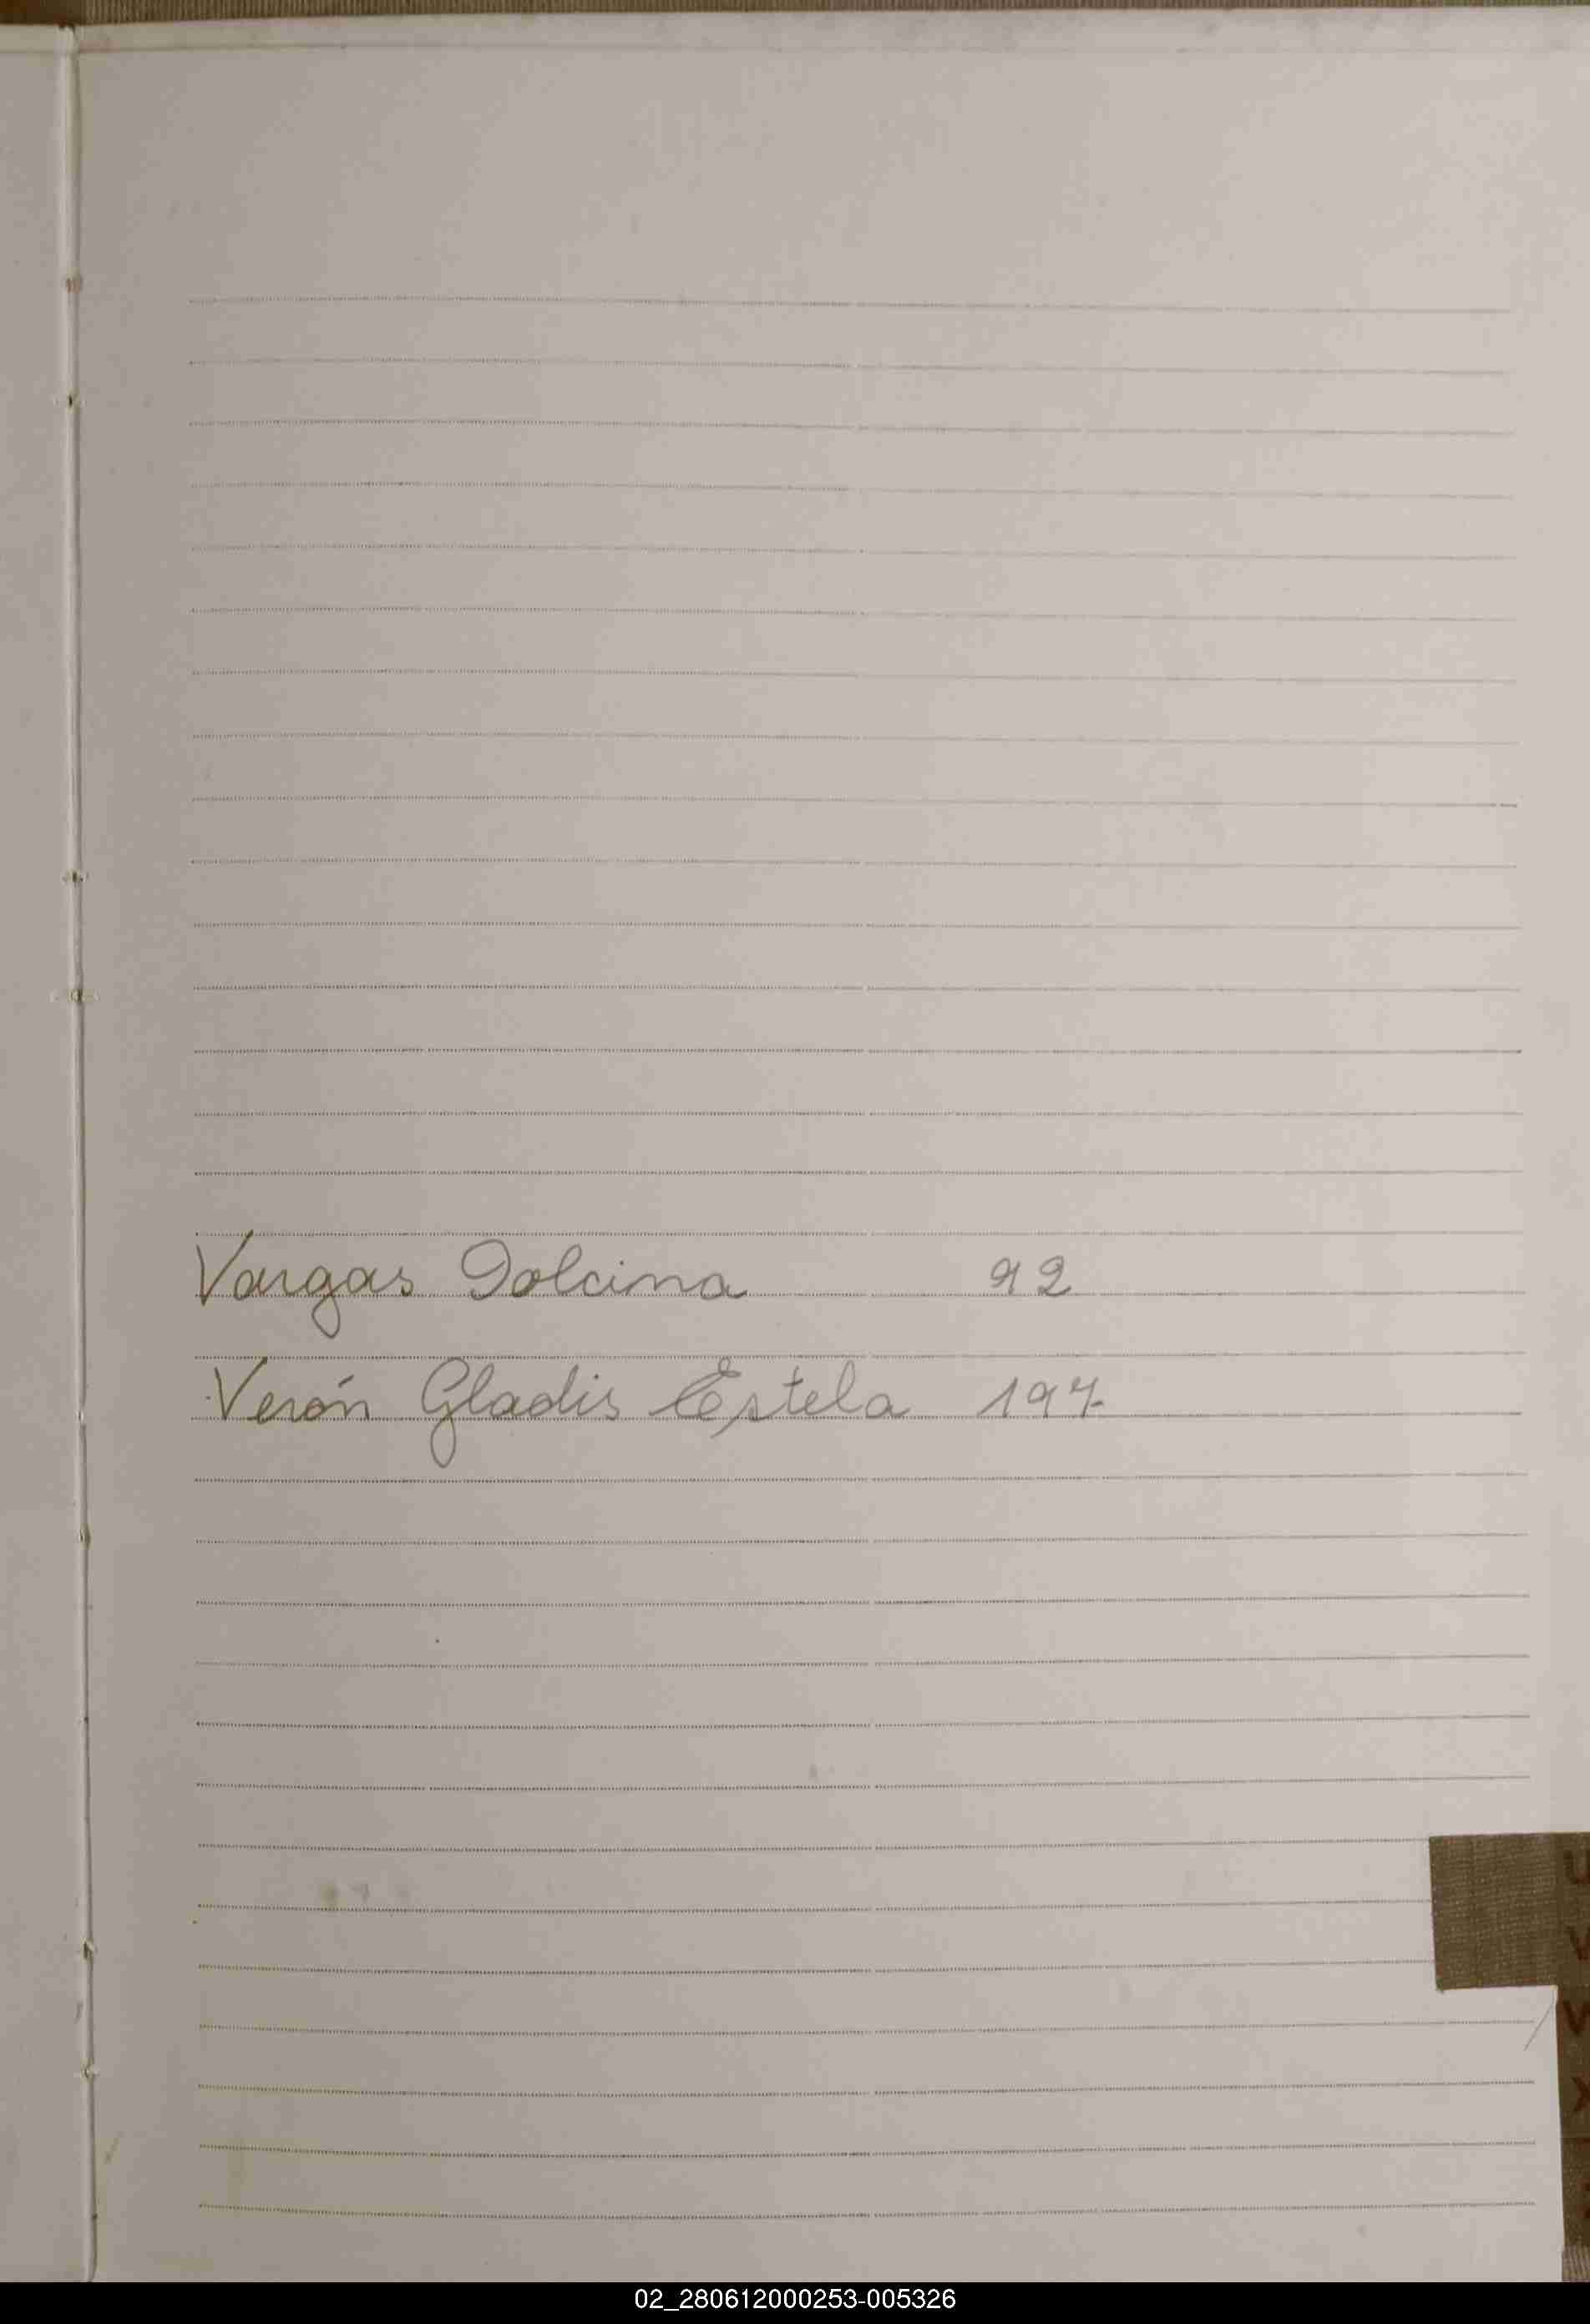 Vargas Dolcina 92
Verón Gladis Estela 197
U
V
X
02_280612000253-005326